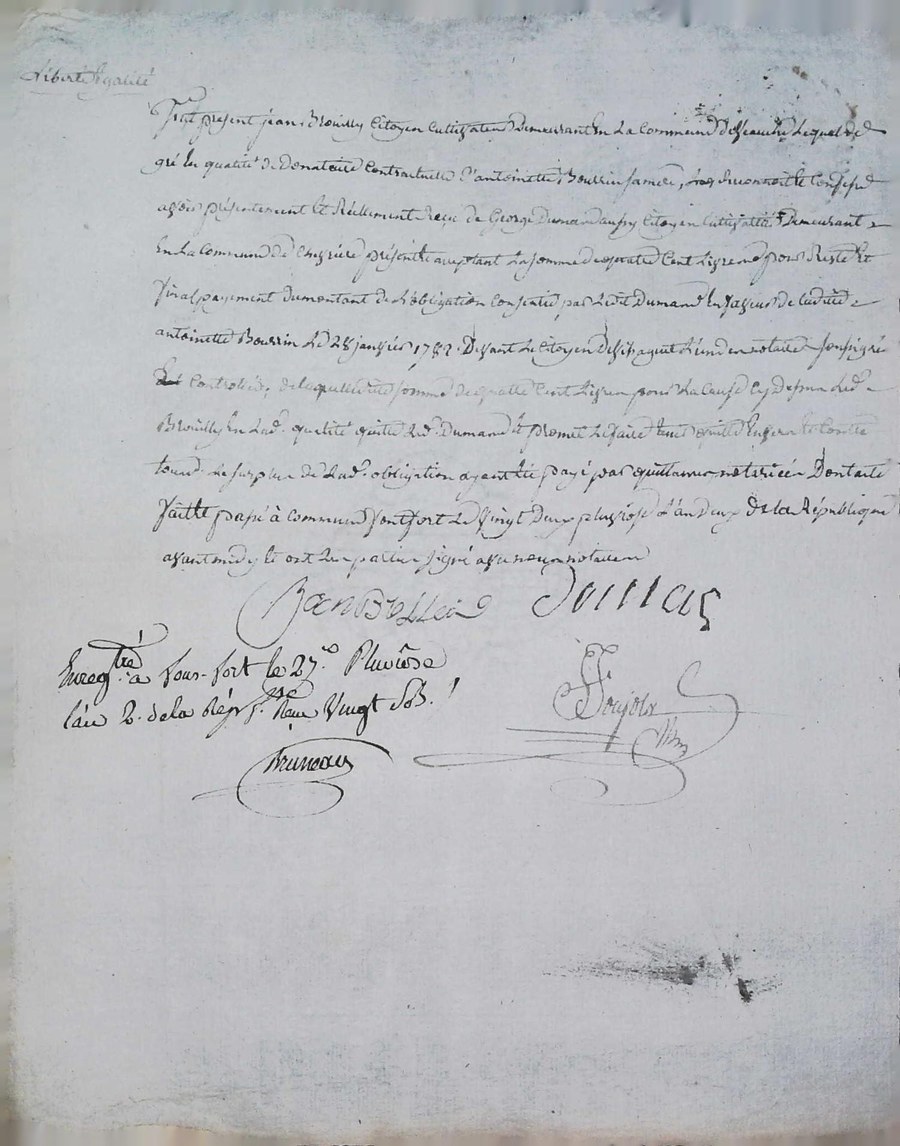 Liberté Egalité
Fut présent jean Brouilly Citoyen Cultivateur Demeurant En La Commune Lequel de
gré En qualité de Donataire Contractuelle D'antoinette Bourrin Reconnoit et Confesse
avoir présentement et Réellement Reçu de George Dumas Citoyen Cultivateur Demeurant
En La Commune de présent et acceptant La somme de quatre Cent Livres pour Reste Et
final payement du montant de L'obligation Consentie par Ledit Dumas En faveur de Ladite
antoinette Bourrin Le 28 janvier 1782. Devant Le Citoyen L'un des notaires soussignés
Controlée, de laquelle ditte somme de quatre Cent Livres pour La Cause Cy Dessus Led.
Brouilly En Lad. qualité quitte Led. Dumas et promet Le faire tenir quitte Envers et Contre
tous. Le surplus de Lad. obligation ayant été payé par quittances notariées Dont acte
faitte passé à Commune font fort Le Vingt Deux pluviose L'an Deux de la République
avant midy et ont Les parties signé avec nous notaires
Dumas
Enregtré à fons-fort le 27.e Pluviôse
l'an 2. de la Rép. f.se Reçu Vingt Sols.
Bruneau